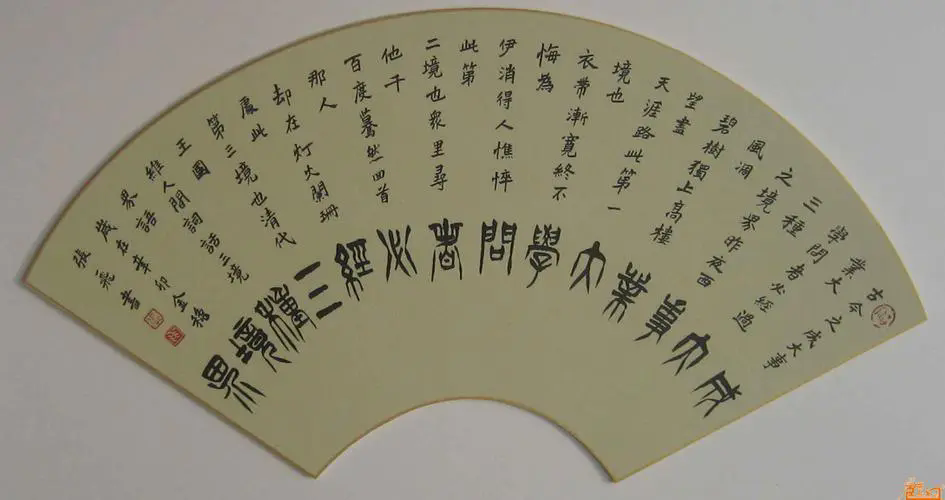 古今之成大事
業大
學問者必經過
三種
之境界昨夜西
風凋
碧樹獨上高樓
望盡
天涯路此第一
境也
衣帶漸寬終不
悔為
伊消得人憔悴
此第
二境也眾里尋
他千
百度驀然回首
那人
却在灯火闌珊
處此
第三境也清代
王國
維人間詞話三境
界語
歲在辛卯金穐
張書
成大事業大學問者必經三種境界